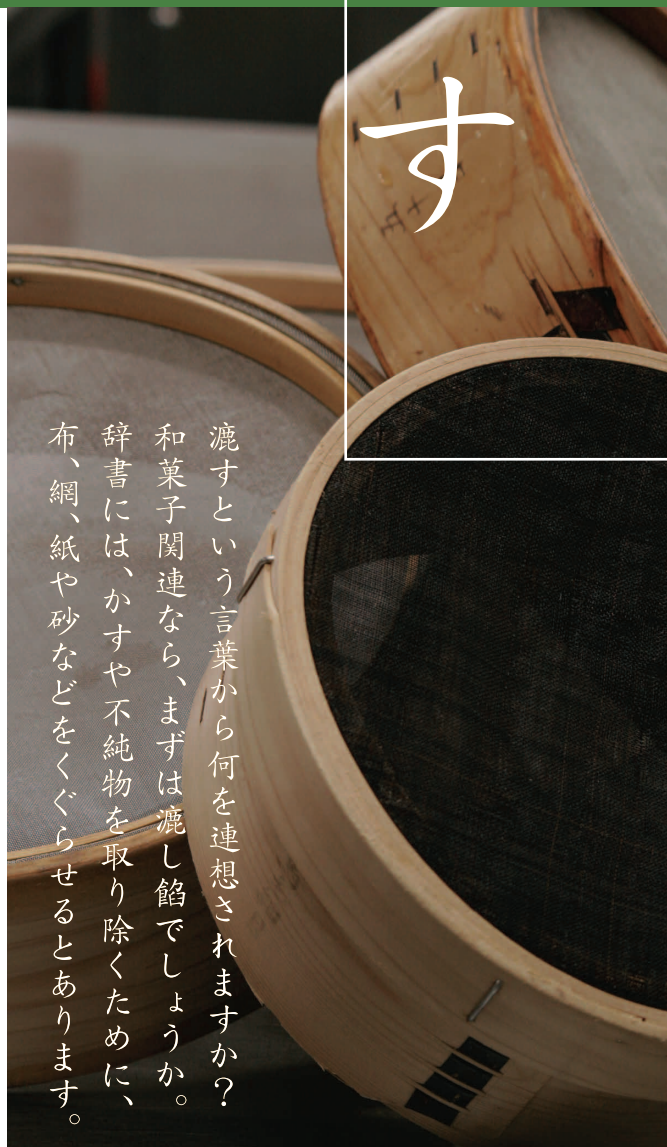 す
漉すという言葉から何を連想されますか？
和菓子関連なら、まずは漉し餡でしょうか。
辞書には、かすや不純物を取り除くために、
布、網、紙や砂などをくぐらせるとあります。